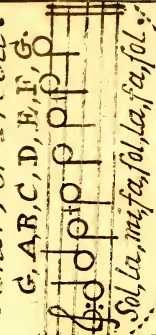 G, A,B,C,D,E,F,G.
Sol,la,mi,fa,ſol,la,fa,ſol.